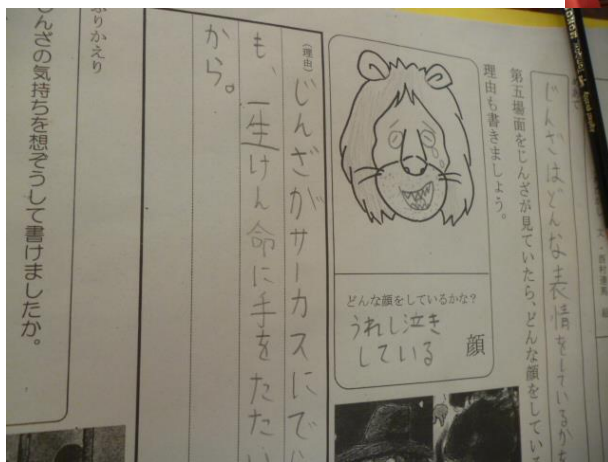 じんざはどんな表情をしているか
第五場面をじんざが見ていたら、どんな顔をしている
理由も書きましょう。
どんな顔をしているかな？
うれし泣き
している
顔
（理由）じんざがサーカスにで
も、一生けん命に手をたたい
から。
ふりかえり
じんざの気持ちを想ぞうして書けましたか。